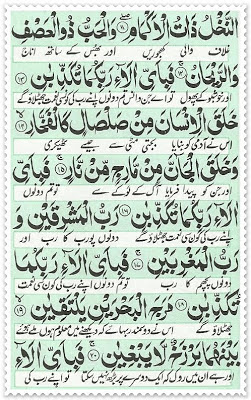 النَّخْلُ ذَاتُ الْاَكْمَامِ ۝۱۱ وَالْحَبُّ ذُو الْعَصْفِ
غلاف والی کھجوریں اور بھس کے ساتھ اناج
وَالرَّيْحَانُ ۝۱۲ فَبِاَيِّ اٰلَآءِ رَبِّكُمَا تُكَذِّبٰنِ ۝۱۳
اور خوشبو کے پھول تو اے جن و انس تم دونوں اپنے رب کی کون سی نعمت جھٹلاؤ گے
خَلَقَ الْاِنْسَانَ مِنْ صَلْصَالٍ كَالْفَخَّارِ ۝۱۴
اس نے آدمی کو بنایا بجتی مٹی سے جیسے ٹھیکری
وَخَلَقَ الْجَآنَّ مِنْ مَّارِجٍ مِّنْ نَّارٍ ۝۱۵ فَبِاَيِّ
اور جن کو پیدا فرمایا آگ کے لوکے سے تو تم دونوں
اٰلَآءِ رَبِّكُمَا تُكَذِّبٰنِ ۝۱۶ رَبُّ الْمَشْرِقَيْنِ وَ
اپنے رب کی کون سی نعمت جھٹلاؤ گے دونوں پورب کا رب اور
رَبُّ الْمَغْرِبَيْنِ ۝۱۷ فَبِاَيِّ اٰلَآءِ رَبِّكُمَا
دونوں پچھم کا رب تو تم دونوں اپنے رب کی کون سی نعمت
تُكَذِّبٰنِ ۝۱۸ مَرَجَ الْبَحْرَيْنِ يَلْتَقِيٰنِ ۝۱۹
جھٹلاؤ گے اس نے دو سمندر بہائے کہ دیکھنے میں معلوم ہوں ملے ہوئے
بَيْنَهُمَا بَرْزَخٌ لَّا يَبْغِيٰنِ ۝۲۰ فَبِاَيِّ اٰلَآءِ
اور ہے ان میں روک کہ ایک دوسرے پر بڑھ نہیں سکتا تو اپنے رب کی